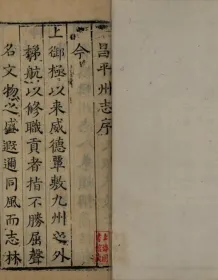 昌平州志序
今
上御極以來威德覃敷九州之外
梯航以修職貢者指不勝屈聲
名文物之盛遐邇同風而志林